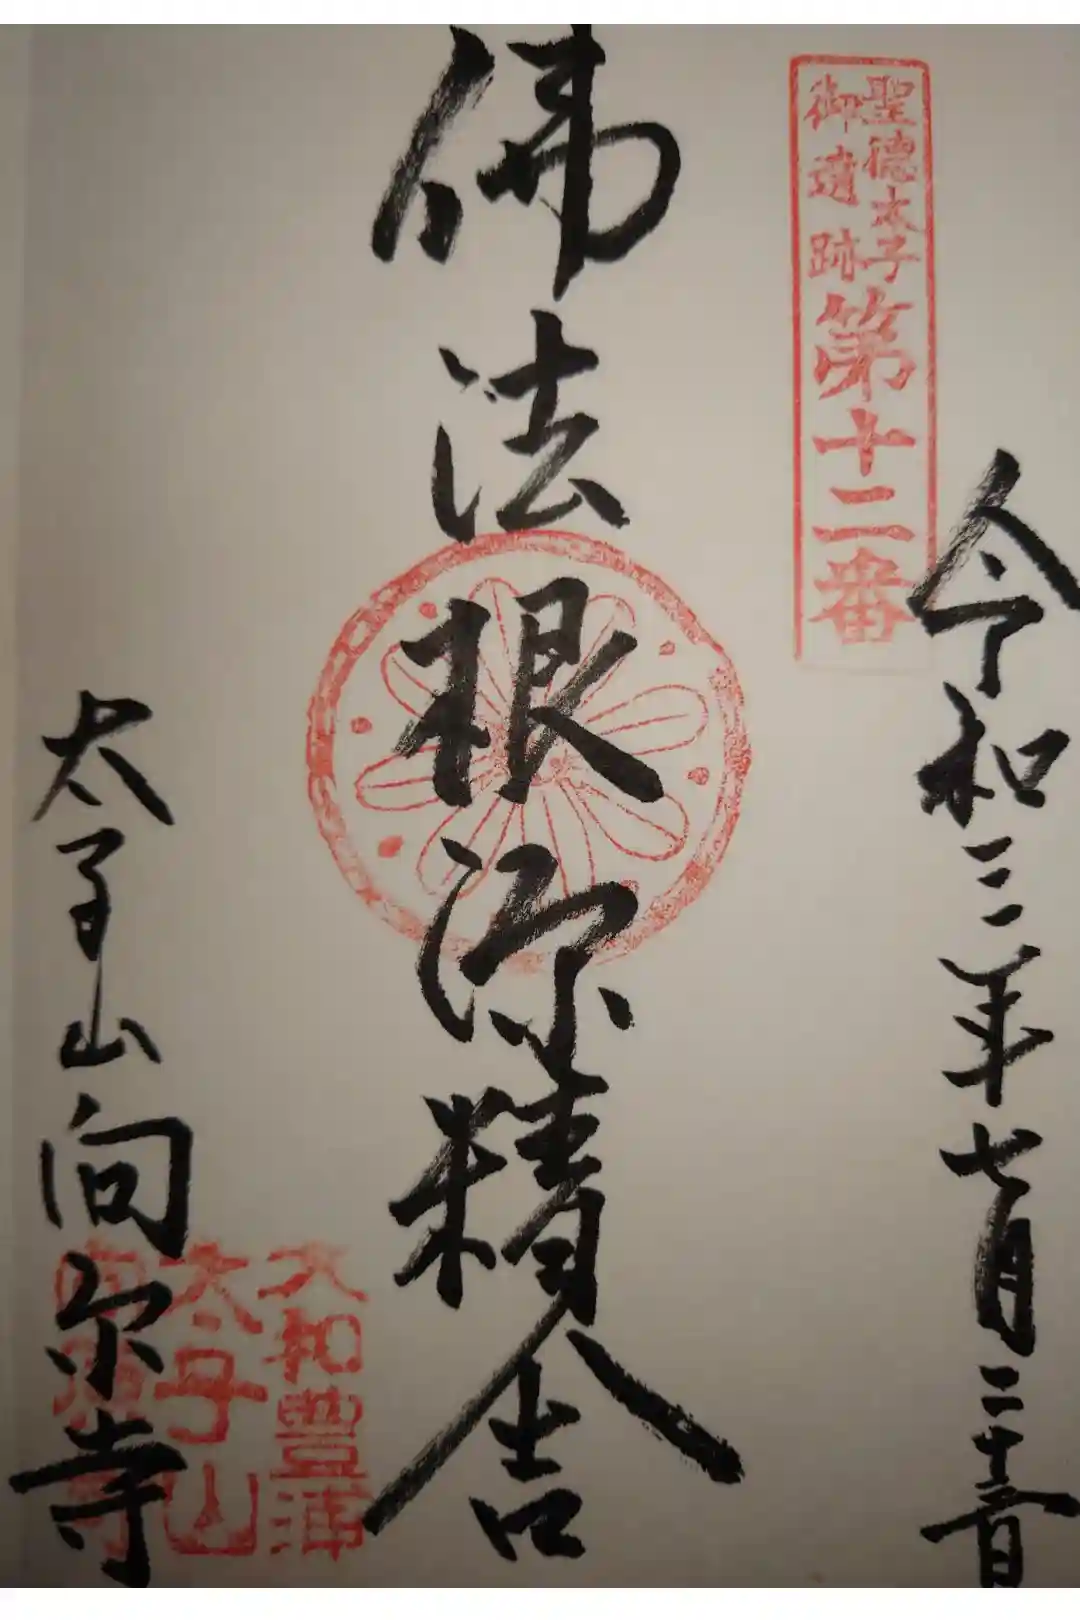 聖徳太子
御遺跡
第十二番
令和三年七月二十日
佛法根源精舎
太子山向原寺
大和豊浦
太子山
向原寺